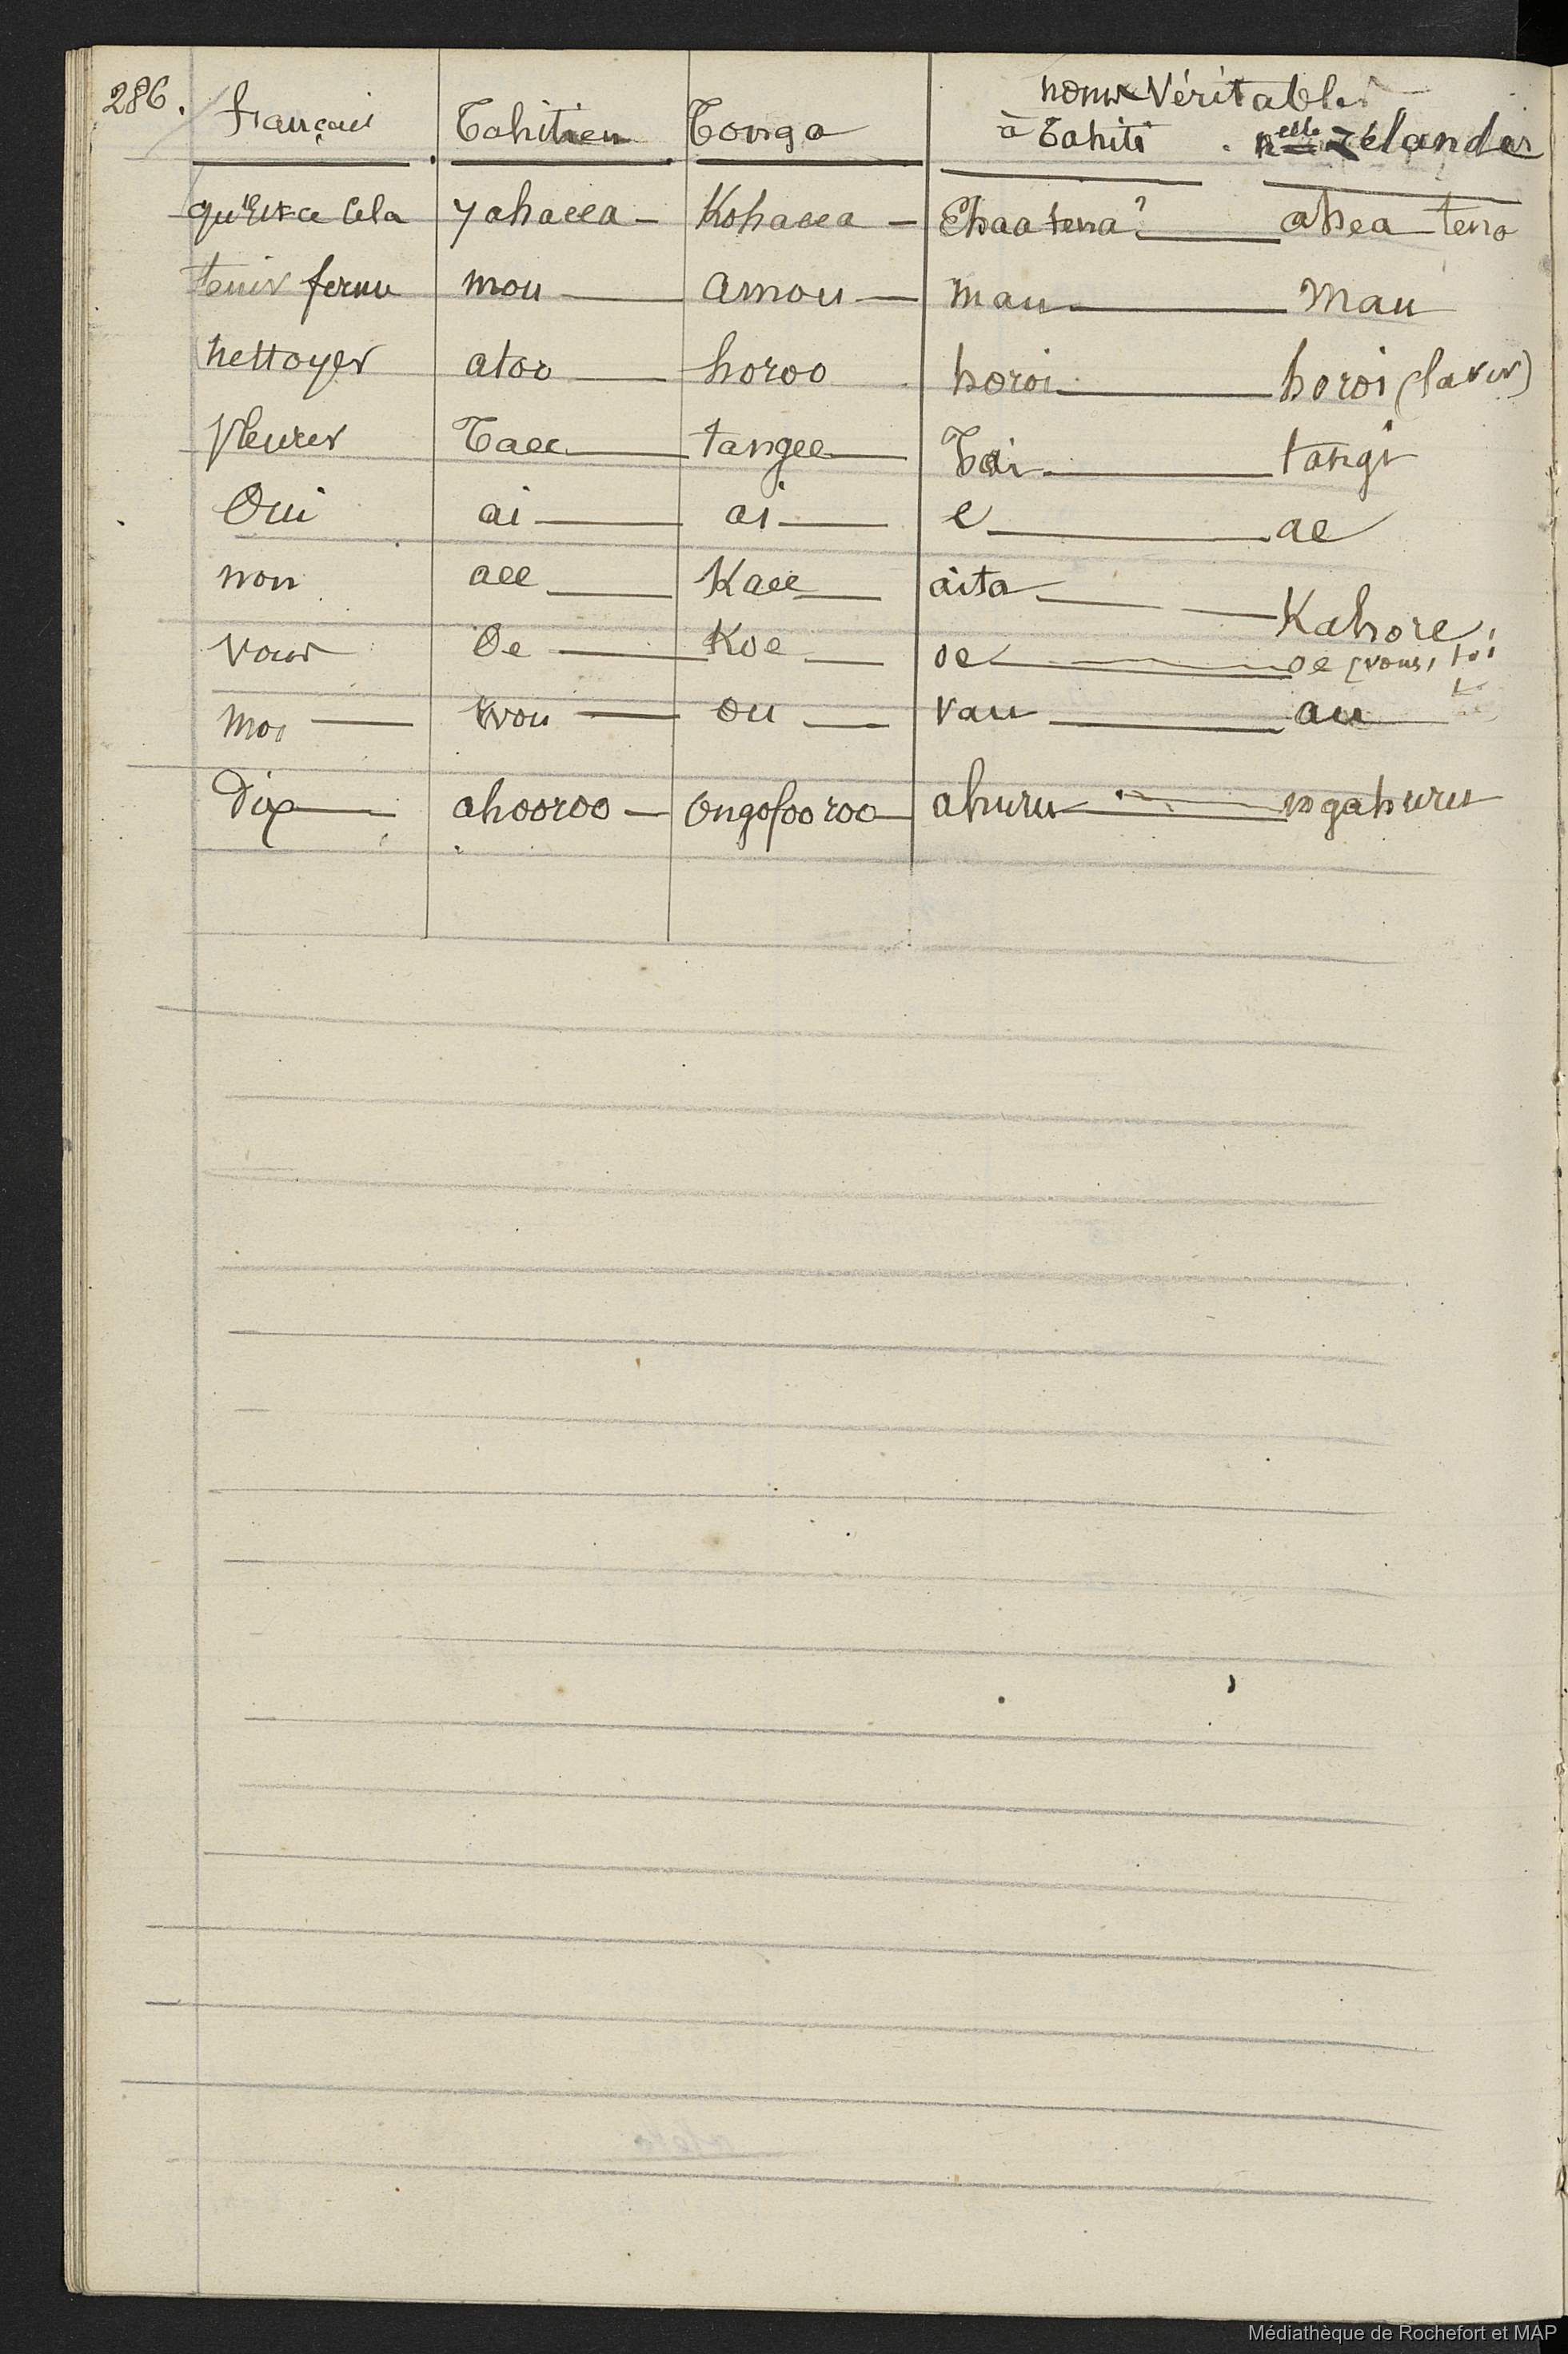 286.
noms Véritables
français Tahitien Tonga à Tahiti nelle Zélander
qu'Est-ce Cela yahaeea Kohaeea Ehaa tena? ahea tena
tenir ferme mou amou mau mau
nettoyer atoo horoo horoi horoi (laver)
pleurer Taee tangee Tai tangi
Oui ai ai e ae
non aee Kaee aita Kahore
vous Oe Koe oe oe (vous, toi
moi wou ou vau au
Dix ahooroo Ongofooroo ahuru ngahuru
Médiathèque de Rochefort et MAP